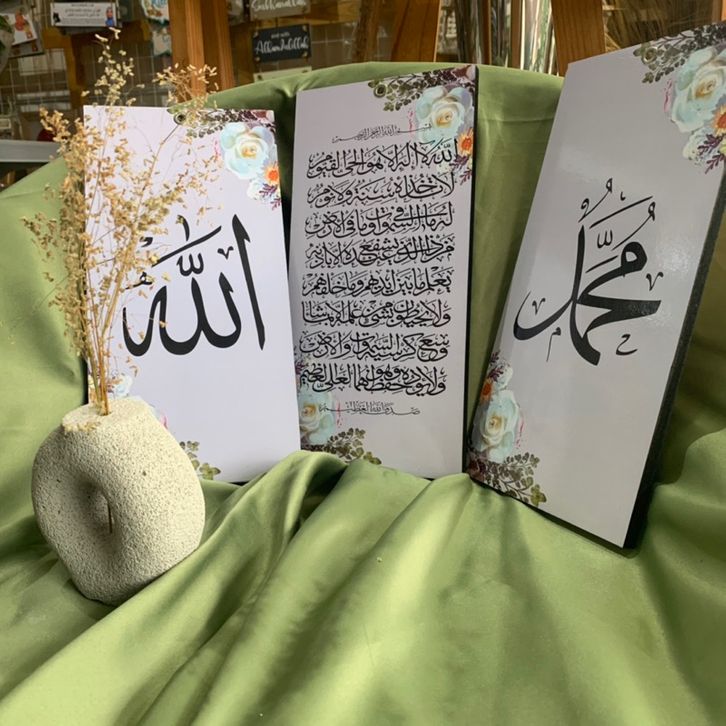 Alhamdulillah
الله
بسم الله الرحمن الرحيم
الله لا إله إلا هو الحي القيوم
لا تأخذه سنة ولا نوم
له ما في السماوات وما في الأرض
من ذا الذي يشفع عنده إلا بإذنه
يعلم ما بين أيديهم وما خلفهم
ولا يحيطون بشيء من علمه إلا بما شاء
وسع كرسيه السماوات والأرض
ولا يؤوده حفظهما وهو العلي العظيم
صدق الله العظيم
محمد